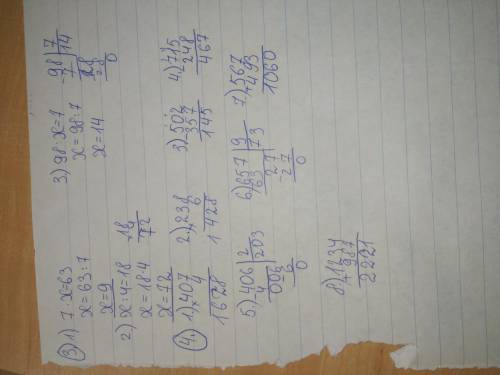 3) 1) 7·x=63
x=63:7
x=9
2) x:4=18
x=18·4
x=72
18
4
72
3) 98:x=7
x=98:7
x=14
-98|7
7 |14
28
28
0
4) 1) ×407
4
1628
2) ×238
6
1428
3) -502
357
145
4) -715
248
467
5) -406|2
4 |203
006
6
0
6) -657|9
63 |73
27
-27
0
7) +567
493
1060
8) +1234
987
2221